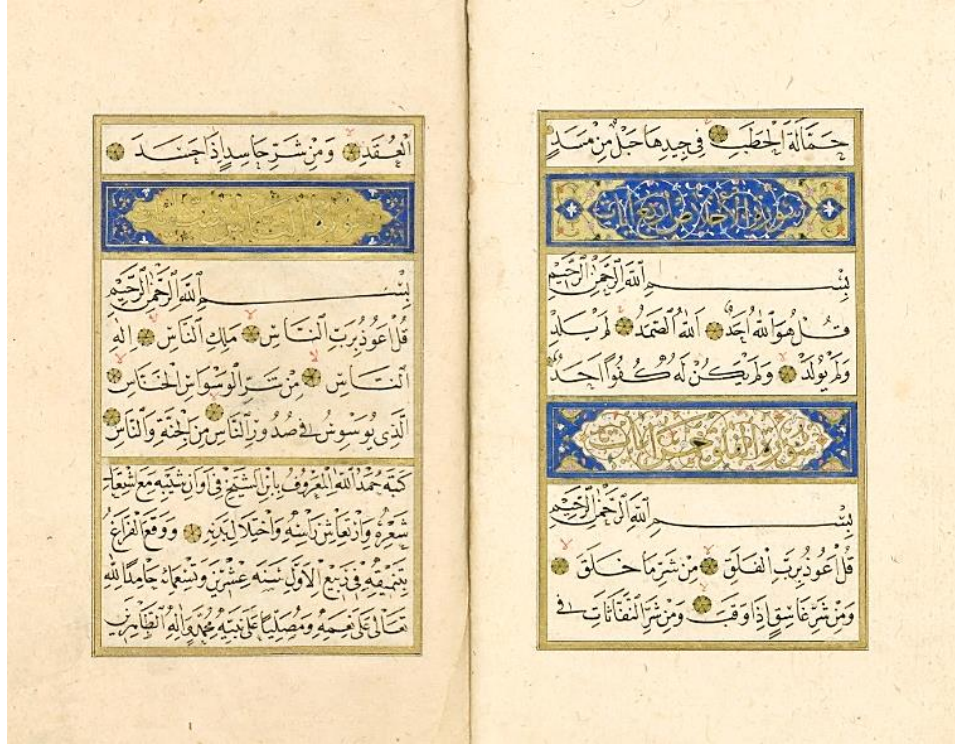 حَمَّالَةَ الْحَطَبِ فِي جِيدِهَا حَبْلٌ مِنْ مَسَدٍ
سورة الاخلاص اربع ايات
بِسْمِ اللَّهِ الرَّحْمٰنِ الرَّحِيمِ
قُلْ هُوَ اللَّهُ أَحَدٌ اللَّهُ الصَّمَدُ لَمْ يَلِدْ
وَلَمْ يُولَدْ وَلَمْ يَكُنْ لَهُ كُفُوًا أَحَدٌ
سورة الفلق خمس ايات
بِسْمِ اللَّهِ الرَّحْمٰنِ الرَّحِيمِ
قُلْ أَعُوذُ بِرَبِّ الْفَلَقِ مِنْ شَرِّ مَا خَلَقَ
وَمِنْ شَرِّ غَاسِقٍ إِذَا وَقَبَ وَمِنْ شَرِّ النَّفَّاثَاتِ فِي
الْعُقَدِ وَمِنْ شَرِّ حَاسِدٍ إِذَا حَسَدَ
سورة الناس ست ايات
بِسْمِ اللَّهِ الرَّحْمٰنِ الرَّحِيمِ
قُلْ أَعُوذُ بِرَبِّ النَّاسِ مَلِكِ النَّاسِ إِلٰهِ
النَّاسِ مِنْ شَرِّ الْوَسْوَاسِ الْخَنَّاسِ
الَّذِي يُوَسْوِسُ فِي صُدُورِ النَّاسِ مِنَ الْجِنَّةِ وَالنَّاسِ
كتبه حمد الله المعروف بابن الشيخ في اوان شيبه مع
شعره وارتعاش راسه واختلال بدنه ووقع الفراغ
بتنميقه في ربيع الاول سنه عشرين وتسعمائه حامدا لله
تعالى على نعمه ومصليا على نبيه محمد واله الطاهرين